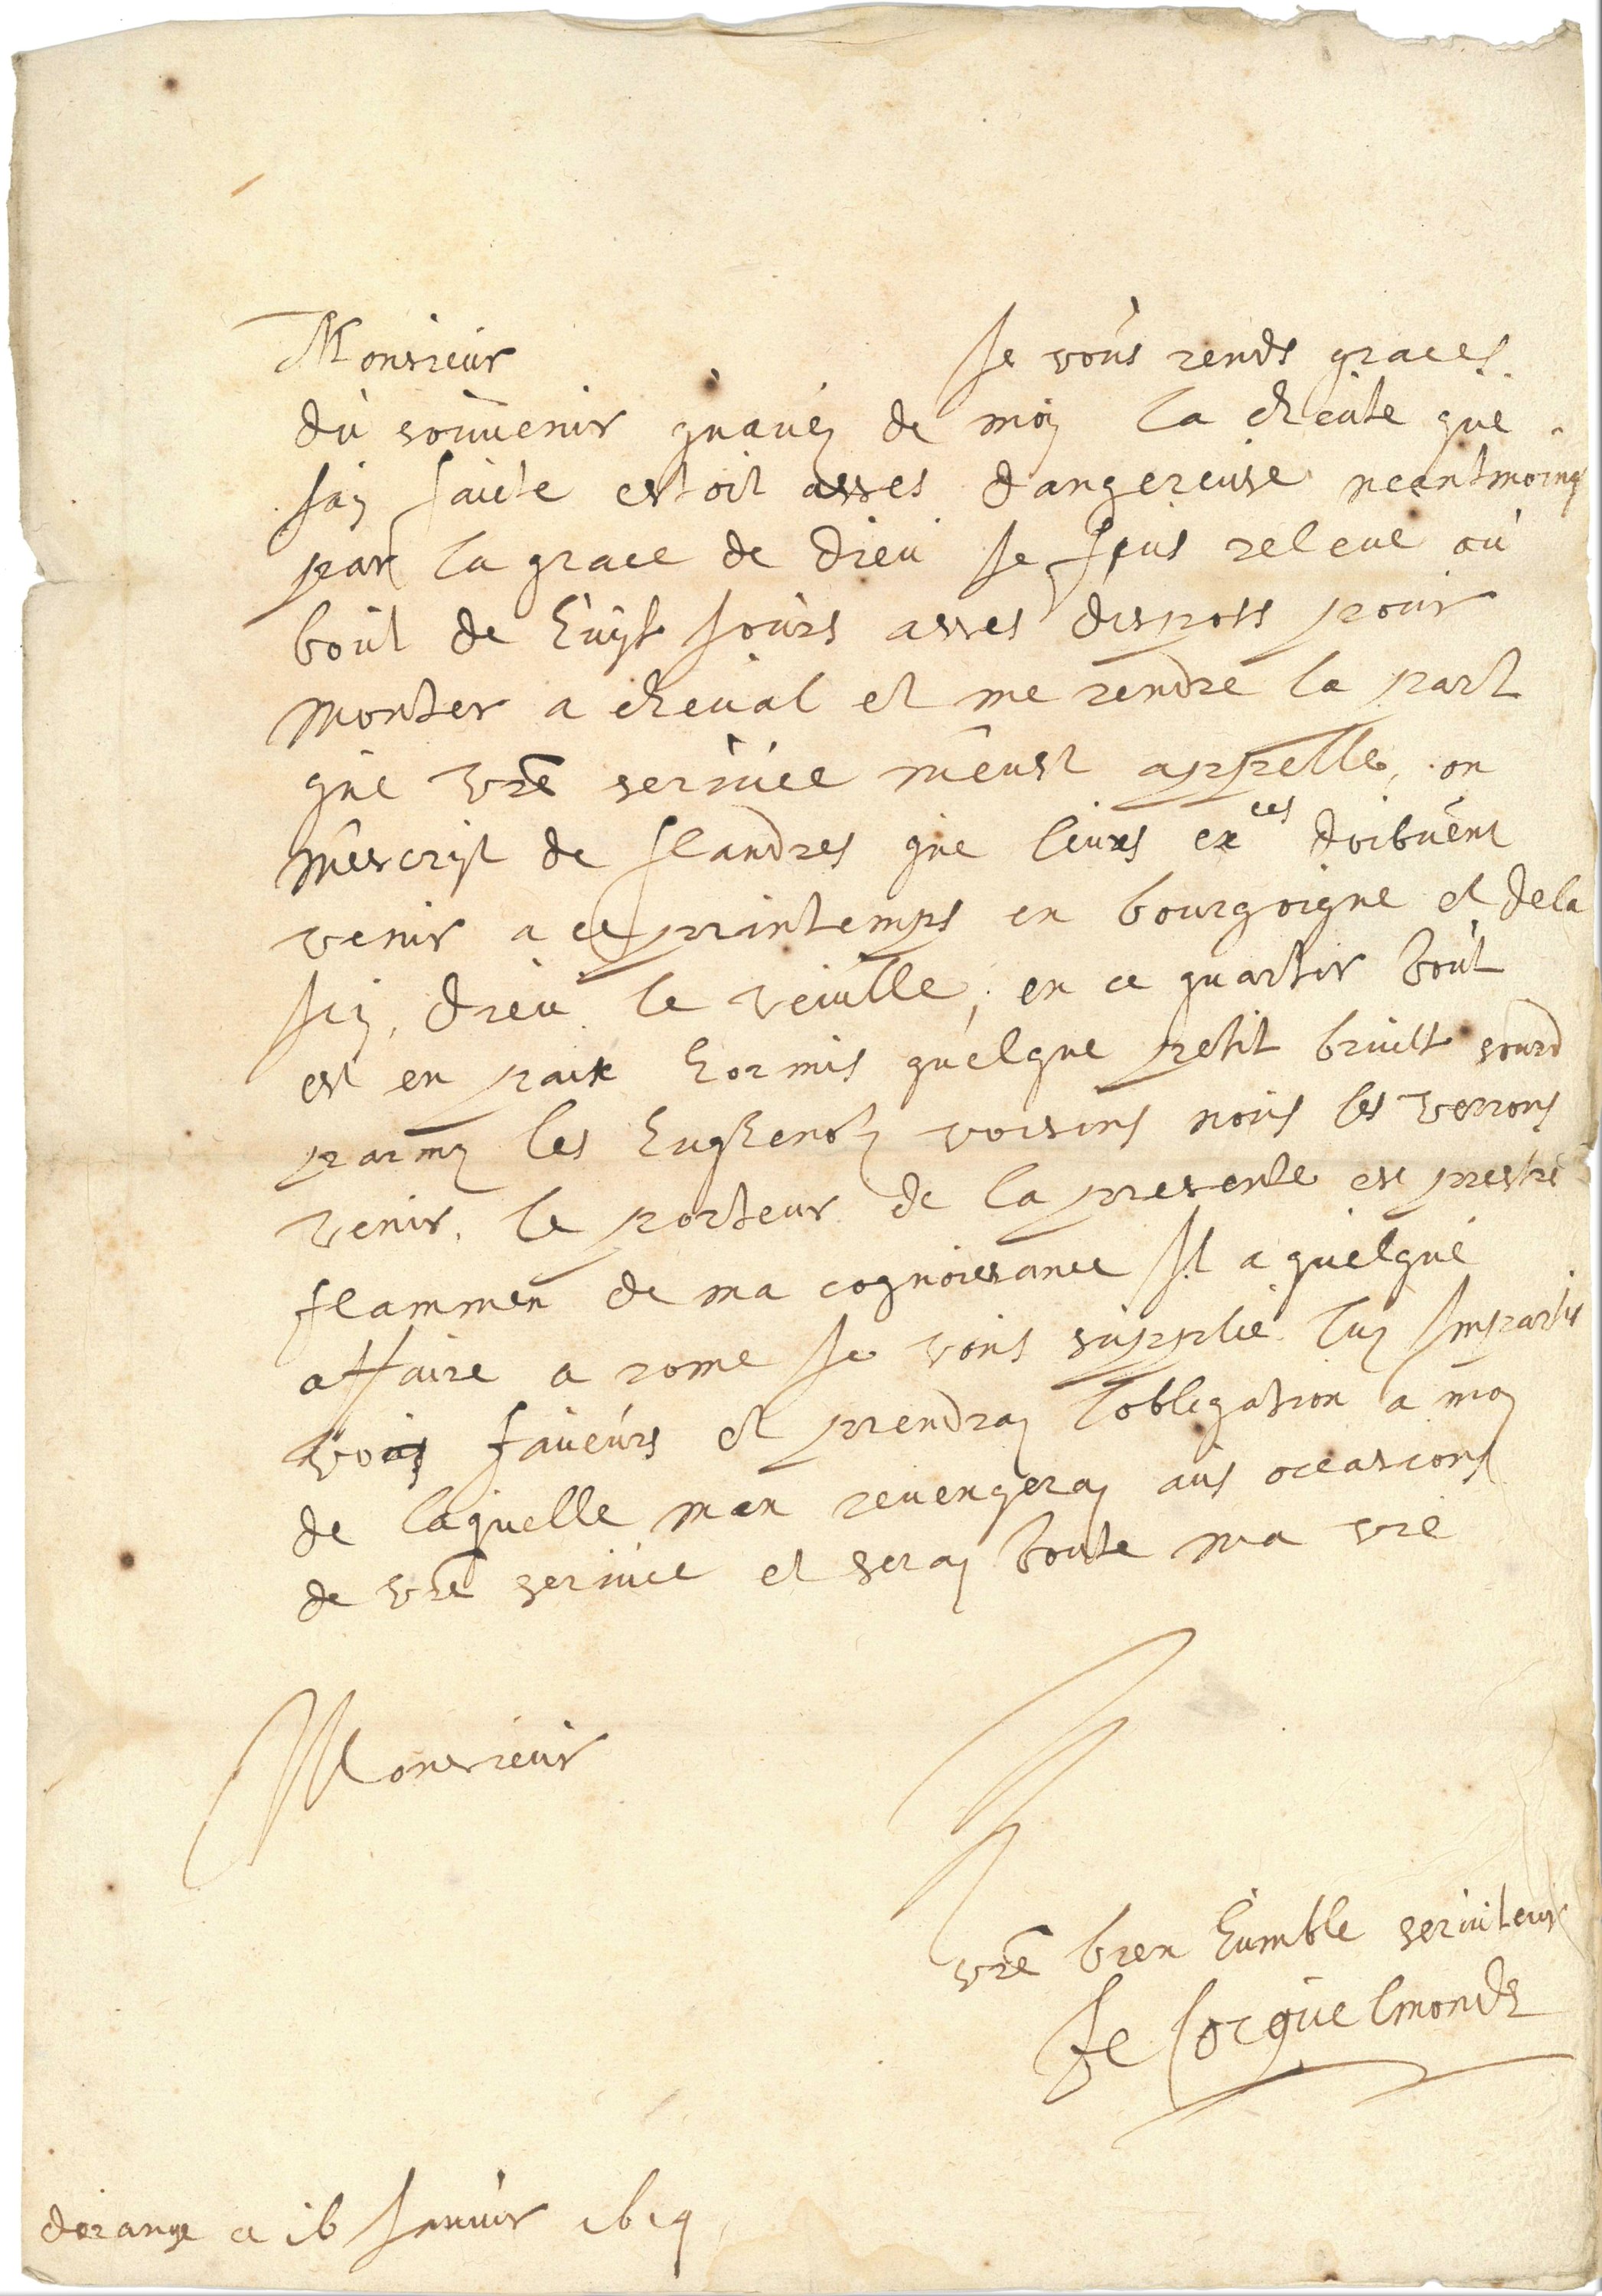 Monsieur Je vous rends graces
du souvenir qu'avez de moy la cheute que
J'ay faicte estoit asses dangereuse neantmoings
par la grace de dieu Je feus releve au
bout de huyt Jours asses disposs pour
monter a cheval et me rendre la part
que vre service m'eust appelle, on
m'escript de flandres que leurs exces doibvent
venir a ce printemps en bourgoigne et dela
Icy, dieu le veuille, en ce quartir tout
est en paix hormis quelque petit bruict sourd
parmy les hughenotz voisins nous les verrons
venir. le porteur de la presente est prestre
flammen de ma cognoissance Il a quelque
affaire a rome Je vous supplie luy Impartir
vos faveurs et prendray l'obligation a moy
de laquelle man revengeray aus occasions
de vre service et seray toute ma vie
Monsieur
vre bien humble serviteur
dorange ce 16 Janvir 1619